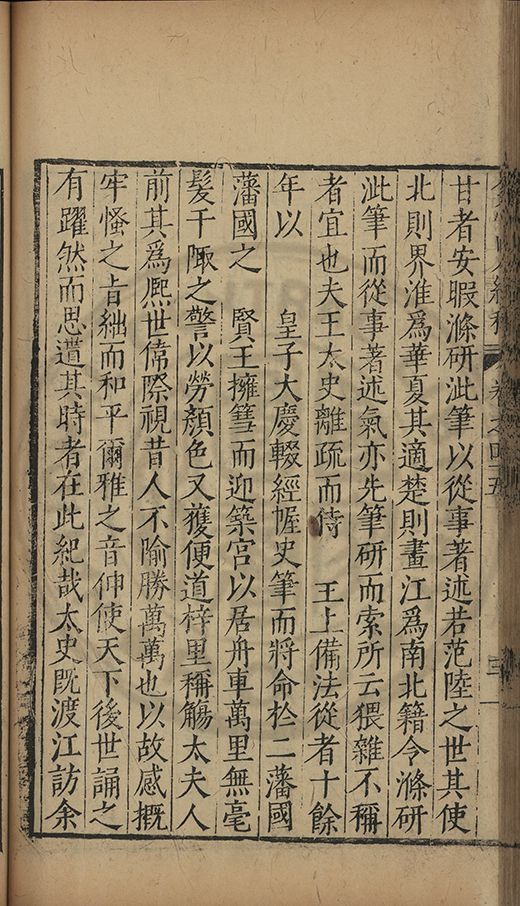 甘者安暇滌研泚筆以從事著述若范陸之世其使
北則界淮爲華夏其適楚則畫江爲南北籍令滌研
泚筆而從事著述氣亦先筆研而索所云猥雜不稱
者宜也夫王太史離疏而侍　王上備法從者十餘
年以　皇子大慶輟經幄史筆而將命於二藩國
藩國之　賢王擁篲而迎築宮以居舟車萬里無毫
髮干陬之警以勞顏色又獲便道梓里稱觴太夫人
前其爲熙世偉際視昔人不啻勝萬萬也以故感慨
牢慅之旨絀而和平爾雅之音伸使天下後世誦之
有躍然而思遭其時者在此紀哉太史旣渡江訪余